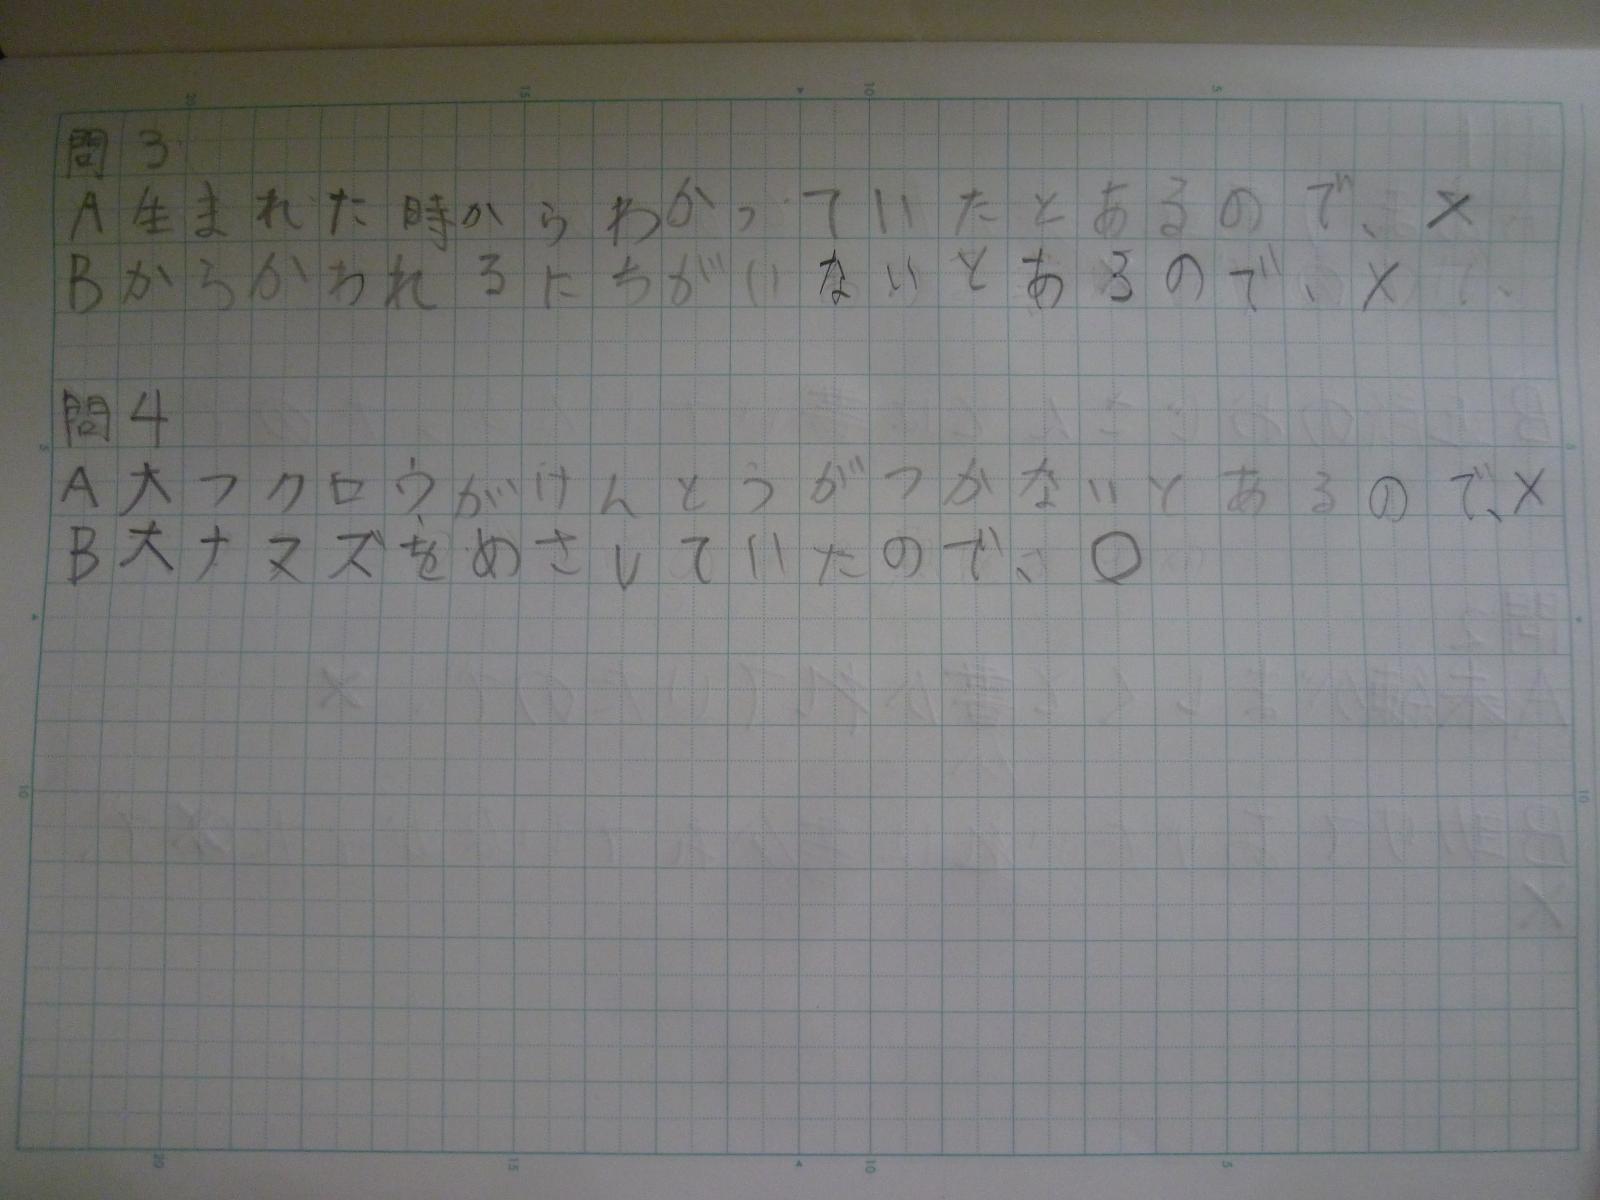 問3
A生まれた時からわかっていたとあるので、×
Bからかわれるにちがいないとあるので、×
問4
A大フクロウがけんとうがつかないとあるので、×
B大ナマズをめざしていたので、○